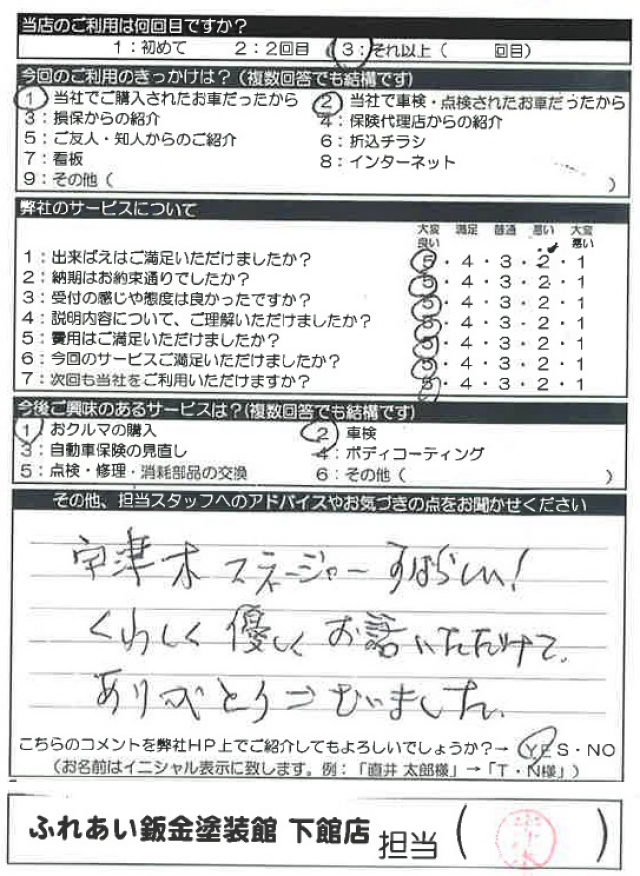 当店のご利用は何回目ですか？
1：初めて　2：2回目　(3：それ以上（　　回目）
今回のご利用のきっかけは？(複数回答でも結構です)
1：当社でご購入されたお車だったから　2：当社で車検・点検されたお車だったから
3：損保からの紹介　4：保険代理店からの紹介
5：ご友人・知人からのご紹介　6：折込チラシ
7：看板　8：インターネット
9：その他（　　）
弊社のサービスについて
大変良い　満足　普通　悪い　大変悪い
1：出来ばえはご満足いただけましたか？　5・4・3・2・1
2：納期はお約束通りでしたか？　5・4・3・2・1
3：受付の感じや態度は良かったですか？　5・4・3・2・1
4：説明内容について、ご理解いただけましたか？　5・4・3・2・1
5：費用はご満足いただけましたか？　5・4・3・2・1
6：今回のサービスご満足いただけましたか？　5・4・3・2・1
7：次回も当社をご利用いただけますか？　5・4・3・2・1
今後ご興味のあるサービスは？(複数回答でも結構です)
1：おクルマの購入　2：車検
3：自動車保険の見直し　4：ボディコーティング
5：点検・修理・消耗部品の交換　6：その他（　　）
その他、担当スタッフへのアドバイスやお気づきの点をお聞かせください
宇津木マネージャーすばらしい！
くわしく優しくお話いただけて、
ありがとうございました。
こちらのコメントを弊社HP上でご紹介してもよろしいでしょうか？→ YES・NO
（お名前はイニシャル表示に致します。例：「直井 太郎様」→「T・N様」）
ふれあい鈑金塗装館 下館店 担当（　　）